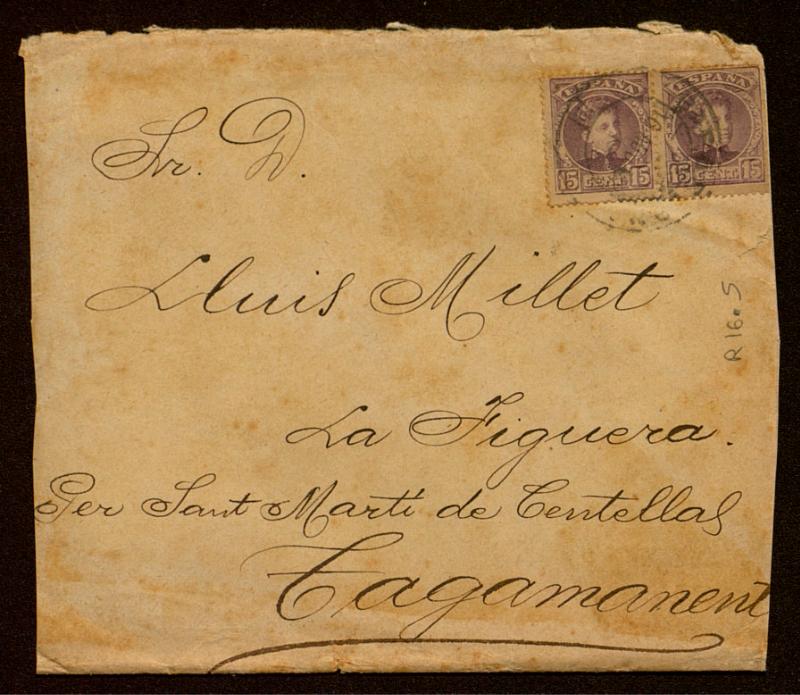 ESPAÑA ESPAÑA
15 CENT 15 15 CENT 15
Sr. D.
Lluis Millet
R 16.5
La Figuera.
Per Sant Martí de Centellas
Tagamanent